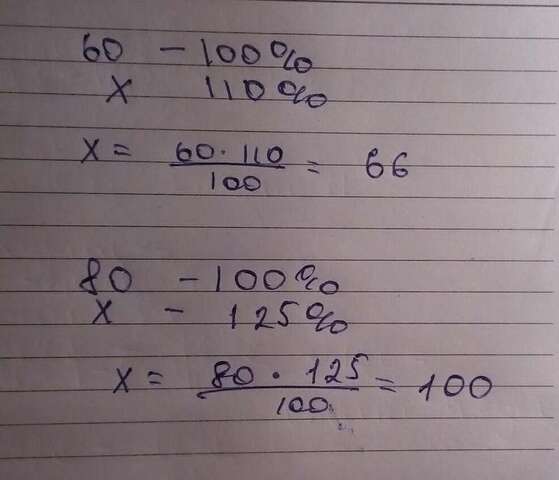 60 - 100%
x 110%
x = 60 · 110 / 100 = 66
80 - 100%
x - 125%
x = 80 · 125 / 100 = 100